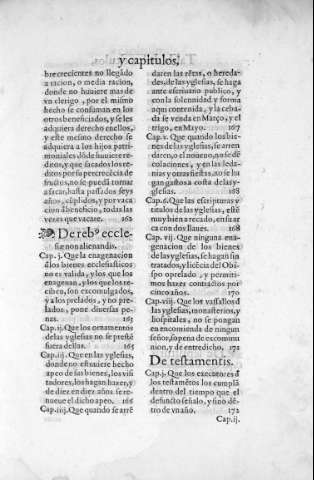 y capitulos,
bre crecientes no llegado
a racion, o media racion,
donde no huuiere mas de
vn clerigo, por el mismo
hecho se consuman en los
otros beneficiados, y se les
adquiera derecho a ellos,
y este mesmo derecho se
adquiera a los hijos patri
moniales dõde huuiere re
ditos, y que sacados los re
ditos por su percrecẽcia de
frutos, no se puedã tornar
a sacar, hasta passados seys
años, cũplidos, y por vaca
cion d beneficio, todas las
vezes que vacare. 163
De reb⁹ eccle-
siæ non alienandis.
Cap. j. Que la enagenacion
d los bienes ecclesiasticos
no es valida, y los que los
enagenan, y los que los re
ciben, son excomulgados,
y a los prelados, y no pre-
lados, pone diuersas pe-
nas 163
Cap. ij. Que los ornamẽtos
de las yglesias no se prestẽ
fuera dellas. 165
Cap. iij. Que en las yglesias,
donde no estuuiere hecho
apeo de sus bienes, los visi
tadores, los hagan hazer, y
de diez en diez años se re-
nueue el dicho apeo. 166
Cap. iiij. Que quando se arrẽ
daren las rẽtas, o hereda-
des, de las yglesias, se haga
ante escriuano publico, y
con la solennidad y forma
aqui contenida, y la ceba-
da se venda en Março, y el
trigo, en Mayo. 167
Cap. v. Que quando los bie-
nes de las yglesias, se arren
daren, o el noueno, no se dẽ
colaciones, y en las leda-
nias y otras fiestas, no se ha
gan gastos a costa de las y-
glesias. 168
Cap. 6. Que las escripturas y
titulos de las yglesias, estẽ
muy biẽ a recado, en su ar
ca con dos llaues. 168
Cap. vij. Que ninguna ena-
genacion de los bienes
de las yglesias, se hagan sin
tratados, y licẽcia del Obis
po o prelado, y permiti-
mos hazer contractos por
cinco años. 170
Cap. viij. Que los vassallos d
las yglesias, monasterios, y
hospitales, no se pongan
en encomienda de ningun
señor, so pena de excomu
nion, y de entredicho. 172
De testamentis.
Cap. j. Que los executores d
los testamẽtos los cumplã
dentro del tiempo que el
defuncto señalo, y sino dẽ-
tro de vn año. 172
Cap. ij.